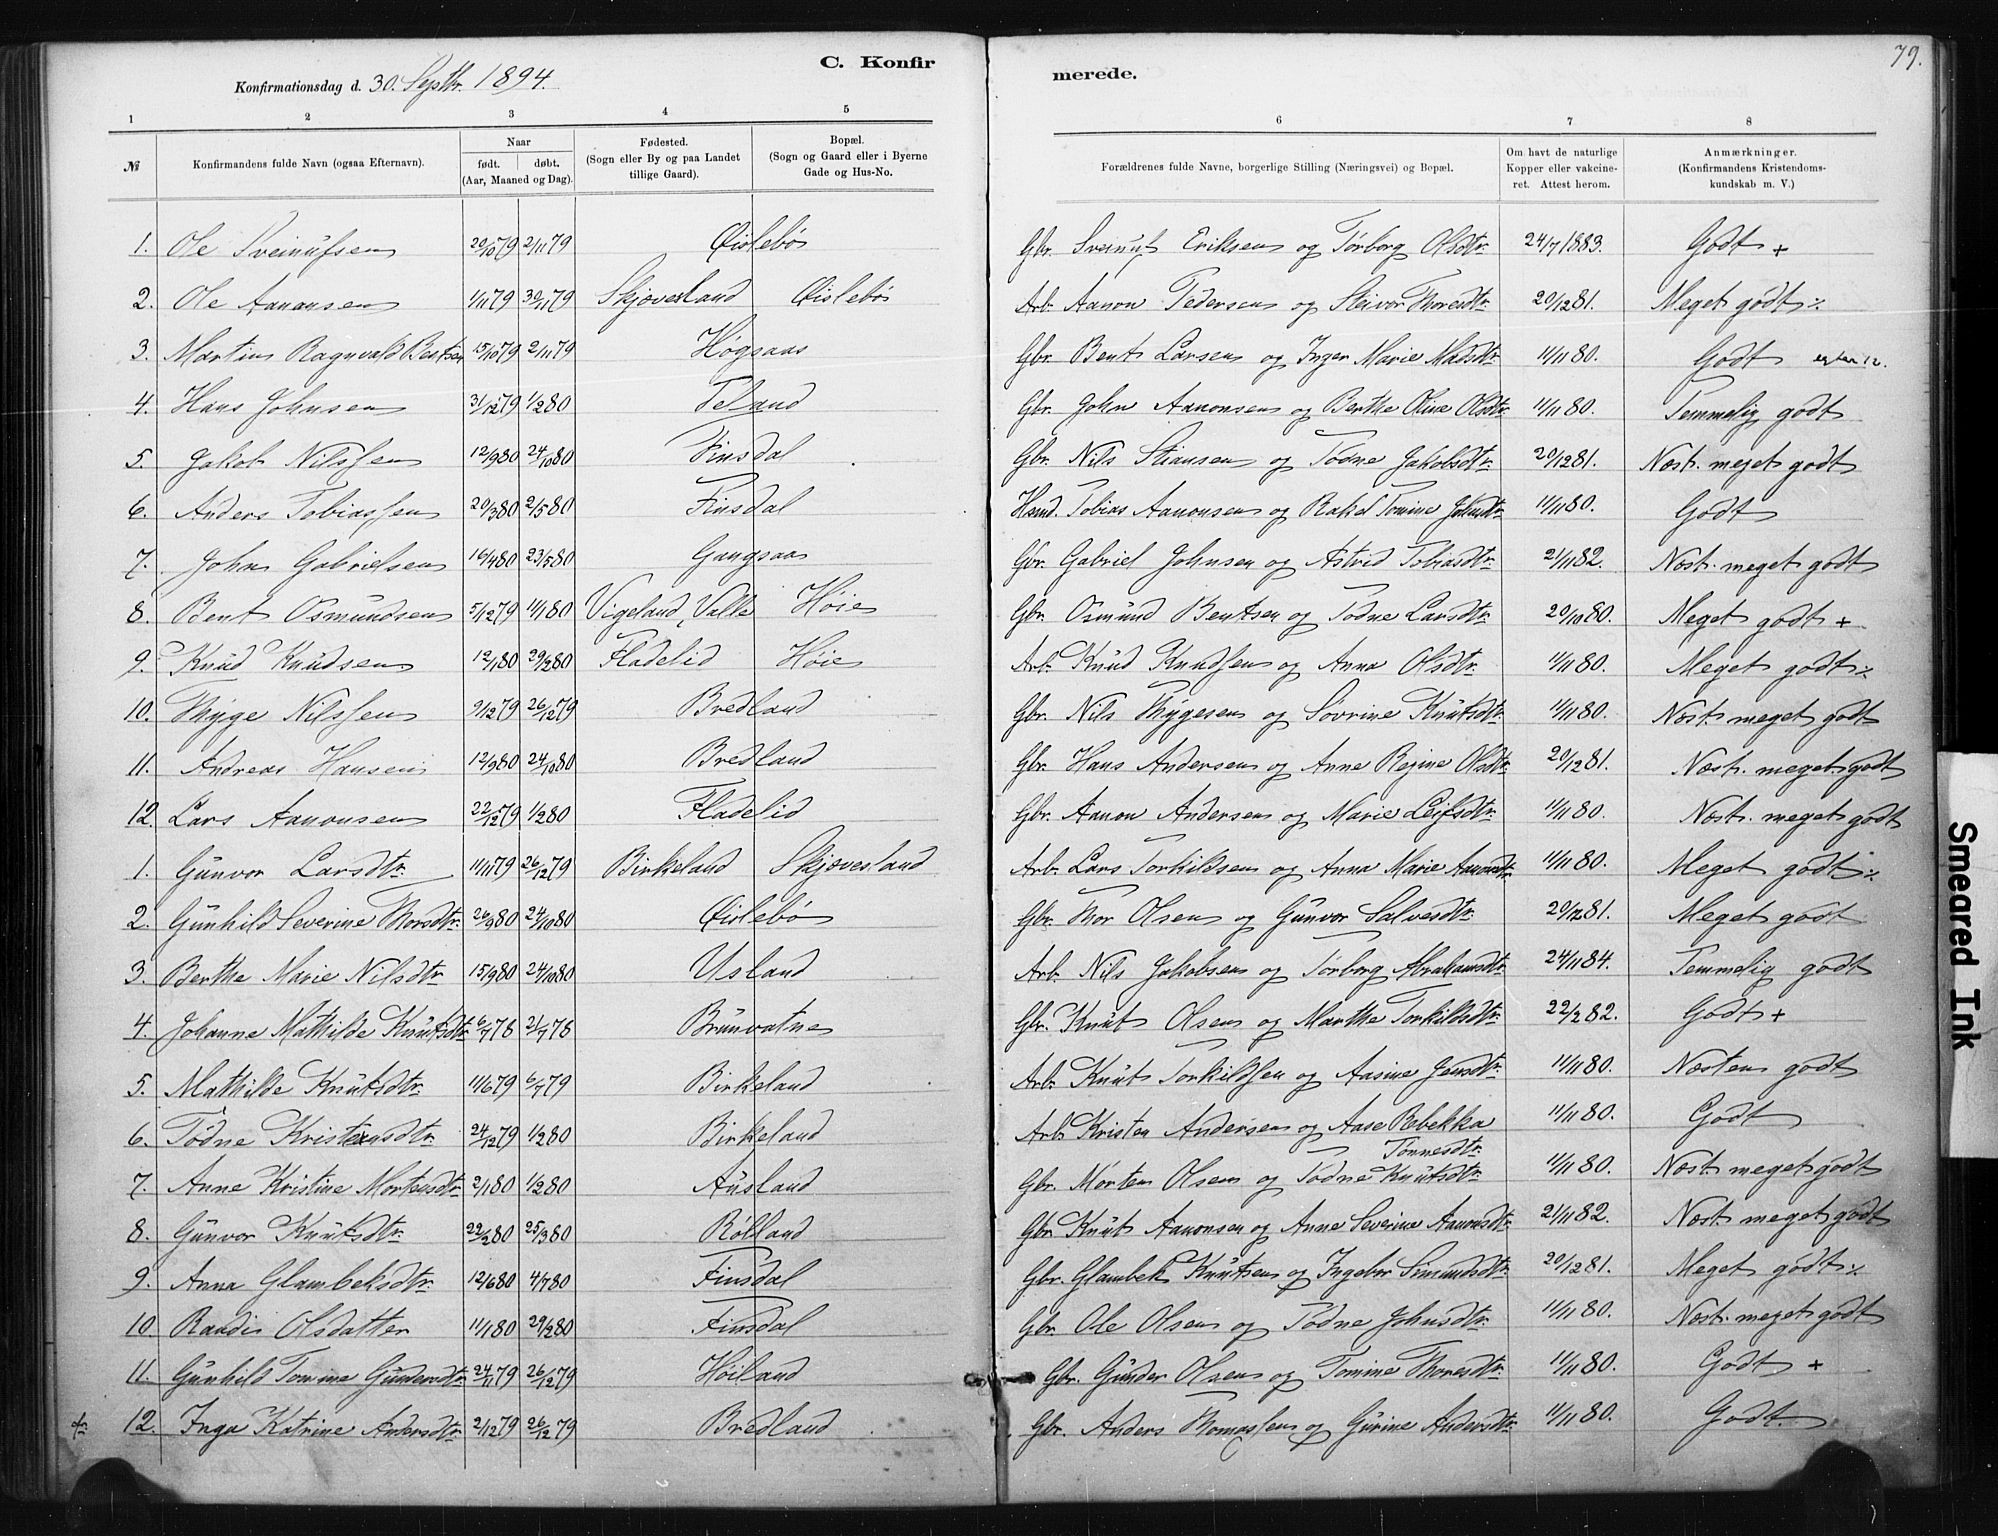 79.
C. Konfir merede.
Konfirmationsdag d. 30. Septbr. 1894.
1 2 3 4 5 6 7 8
№ Konfirmandens fulde Navn (ogsaa Efternavn). Naar født. døbt. (Aar, Maaned og Dag). Fødested. (Sogn eller By og paa Landet tillige Gaard). Bopæl. (Sogn og Gaard eller i Byerne Gade og Hus-No. Forældrenes fulde Navne, borgerlige Stilling (Næringsvei) og Bopæl. Om havt de naturlige Kopper eller vakcineret. Attest herom. Anmærkninger. (Konfirmandens Kristendomskundskab m. V.)
1. Ole Sveinufsen 20/10 79 2/11 79 Øislebø Gbr. Sveinuf Eriksen og Tørborg Olsdtr. 24/7 1883. Godt +
2. Ole Aanonsen 1/11 79 30/11 79 Skjøvesland Øislebø Arb. Aanon Pedersen og Steivor Thoresdtr. 20/12 81. Meget godt ./.
3. Martin Ragnvald Bentsen 15/10 79 2/11 79 Høgsaas Gbr. Bent Larsen og Inger Marie Madsdtr. 11/11 80. Godt
4. Hans Johnsen 31/12 79 1/2 80 Feland Gbr. John Aanonsen og Berthe Oline Olsdtr. 11/11 80. Temmelig godt
5. Jakob Nilssen 12/9 80 24/10 80 Finsdal Gbr. Nils Stiansen og Tødne Jakobsdtr. 20/12 81. Næst. meget godt
6. Anders Tobiassen 20/3 80 2/5 80 Finsdal Hsmd. Tobias Aanonsen og Rakel Tomine Johnsdtr. 11/11 80. Godt
7. John Gabrielsen 16/4 80 23/5 80 Gangsaas Gbr. Gabriel Johnsen og Astrid Tobiasdtr. 21/11 82. Næst. meget godt
8. Bent Osmundsen 5/12 79 11/1 80 Vigeland, Valle Høie Gbr. Osmund Bentsen og Tødne Larsdtr. 20/10 80. Meget godt +
9. Knud Knudsen 12/1 80 29/2 80 Fladelid Høie Arb. Knud Knudsen og Anna Olsdtr. 11/11 80. Meget godt ./.
10. Thyge Nilssen 9/12 79 26/12 79 Bredland Gbr. Nils Thygesen og Sovrine Knutsdtr. 11/11 80. Næst. meget godt
11. Andreas Hansen 12/9 80 24/10 80 Bredland Gbr. Hans Andersen og Anne Regine Olsdtr. 20/12 81. Næst. meget godt
12. Lars Aanonsen 22/12 79 1/2 80 Fladelid Gbr. Aanon Andersen og Marie Leifsdtr. 11/11 80. Næst. meget godt
1. Gunvor Larsdtr. 11/11 79 26/12 79 Birkeland Skjøvesland Arb. Lars Torkildsen og Anna Marie Aanonsdtr. 11/11 80. Meget godt ./.
2. Gunhild Severine Thorsdtr. 26/9 80 24/10 80 Øislebø Gbr. Thor Olsen og Gunvor Salvesdtr. 20/12 81. Meget godt
3. Berthe Marie Nilsdtr. 15/9 80 24/10 80 Usland Arb. Nils Jakobsen og Torborg Abrahamsdtr. 24/11 84. Temmelig godt
4. Johanne Mathilde Knutsdtr. 6/7 78 21/7 78 Brunvatne Gbr. Knut Olsen og Marthe Torkildsdtr. 22/2 82. Godt +
5. Mathilde Knutsdtr. 11/6 79 6/7 79 Birkeland Arb. Knut Torkildsen og Aasine Jensdtr. 11/11 80. Næsten godt
6. Tødne Kristensdtr. 24/12 79 1/2 80 Birkeland Arb. Kristen Andersen og Aase Rebekka Tønnesdtr. 11/11 80. Godt
7. Anne Kristine Mortensdtr. 2/1 80 1/2 80 Ausland Gbr. Morten Olsen og Tødne Knutsdtr. 11/11 80. Næst. meget godt
8. Gunvor Knutsdtr. 22/2 80 25/3 80 Rølland Gbr. Knut Aanonsen og Anne Severine Aanonsdtr. 21/11 82. Næst. meget godt
9. Anna Glambeksdtr. 12/6 80 4/7 80 Finsdal Gbr. Glambek Knutsen og Ingebor Simundsdtr. 20/12 81. Meget godt ./.
10. Randi Olsdatter 11/1 80 29/2 80 Finsdal Gbr. Ole Olsen og Tødne Johnsdtr. 11/11 80. Næst. meget godt
11. Gunhild Tomine Gundersdtr. 24/11 79 26/12 79 Høiland Gbr. Gunder Olsen og Tomine Thoresdtr. 11/11 80. Godt +
12. Inga Katrine Andersdtr. 2/12 79 26/12 79 Bredland Gbr. Anders Thomassen og Gurine Andersdtr. 11/11 80. Godt
Smeared Ink